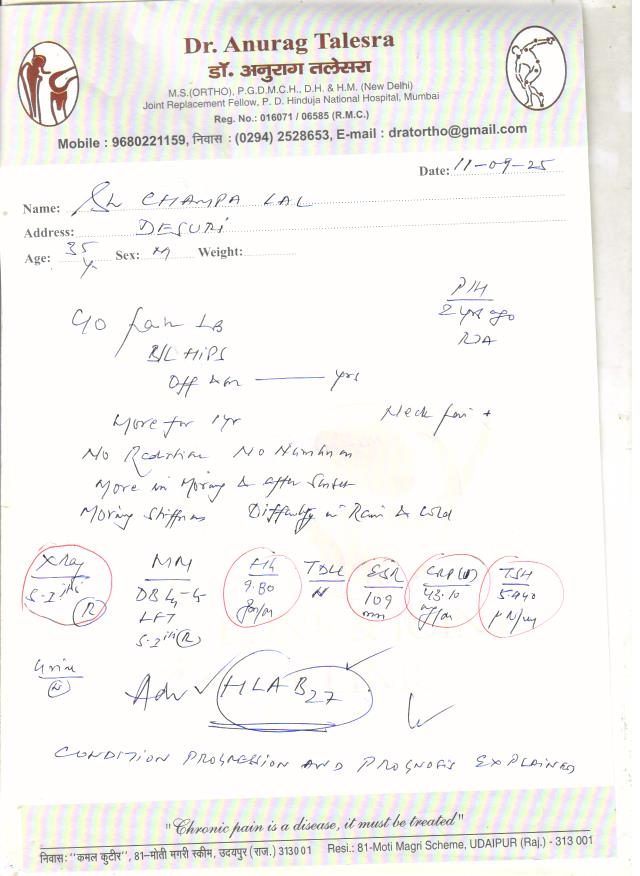 Dr. Anurag Talesra
डॉ. अनुराग तलेसरा
M.S.(ORTHO), P.G.D.M.C.H., D.H. & H.M. (New Delhi)
Joint Replacement Fellow, P. D. Hinduja National Hospital, Mumbai
Reg. No.: 016071 / 06585 (R.M.C.)
Mobile : 9680221159, निवास : (0294) 2528653, E-mail : dratortho@gmail.com
Date: 11-09-25
Name: Sh CHAMPA LAL
Address: DESURI
Age: 35 y Sex: M Weight:
P/H
2 yrs ago
C/o Pain LB
B/L HIPS
Off & on yrs
More for 1yr Neck pain +
No Radiation No Numbness
More in Morning & after
Morning Stiffness Difficulty in Rain & Cold
X Ray MRI Hb TDLC ESR CRP TSH
S-I jts (R) 9.80 N 109 43.10 5.440
gm/ mm
S-I jts (R)
Urine
(N)
Adv ✓ HLA B27
CONDITION PROGRESSION AND PROGNOSIS EXPLAINED
"Chronic pain is a disease, it must be treated"
निवास: "कमल कुटीर", 81-मोती मगरी स्कीम, उदयपुर (राज.) 313001 Resi.: 81-Moti Magri Scheme, UDAIPUR (Raj.) - 313 001